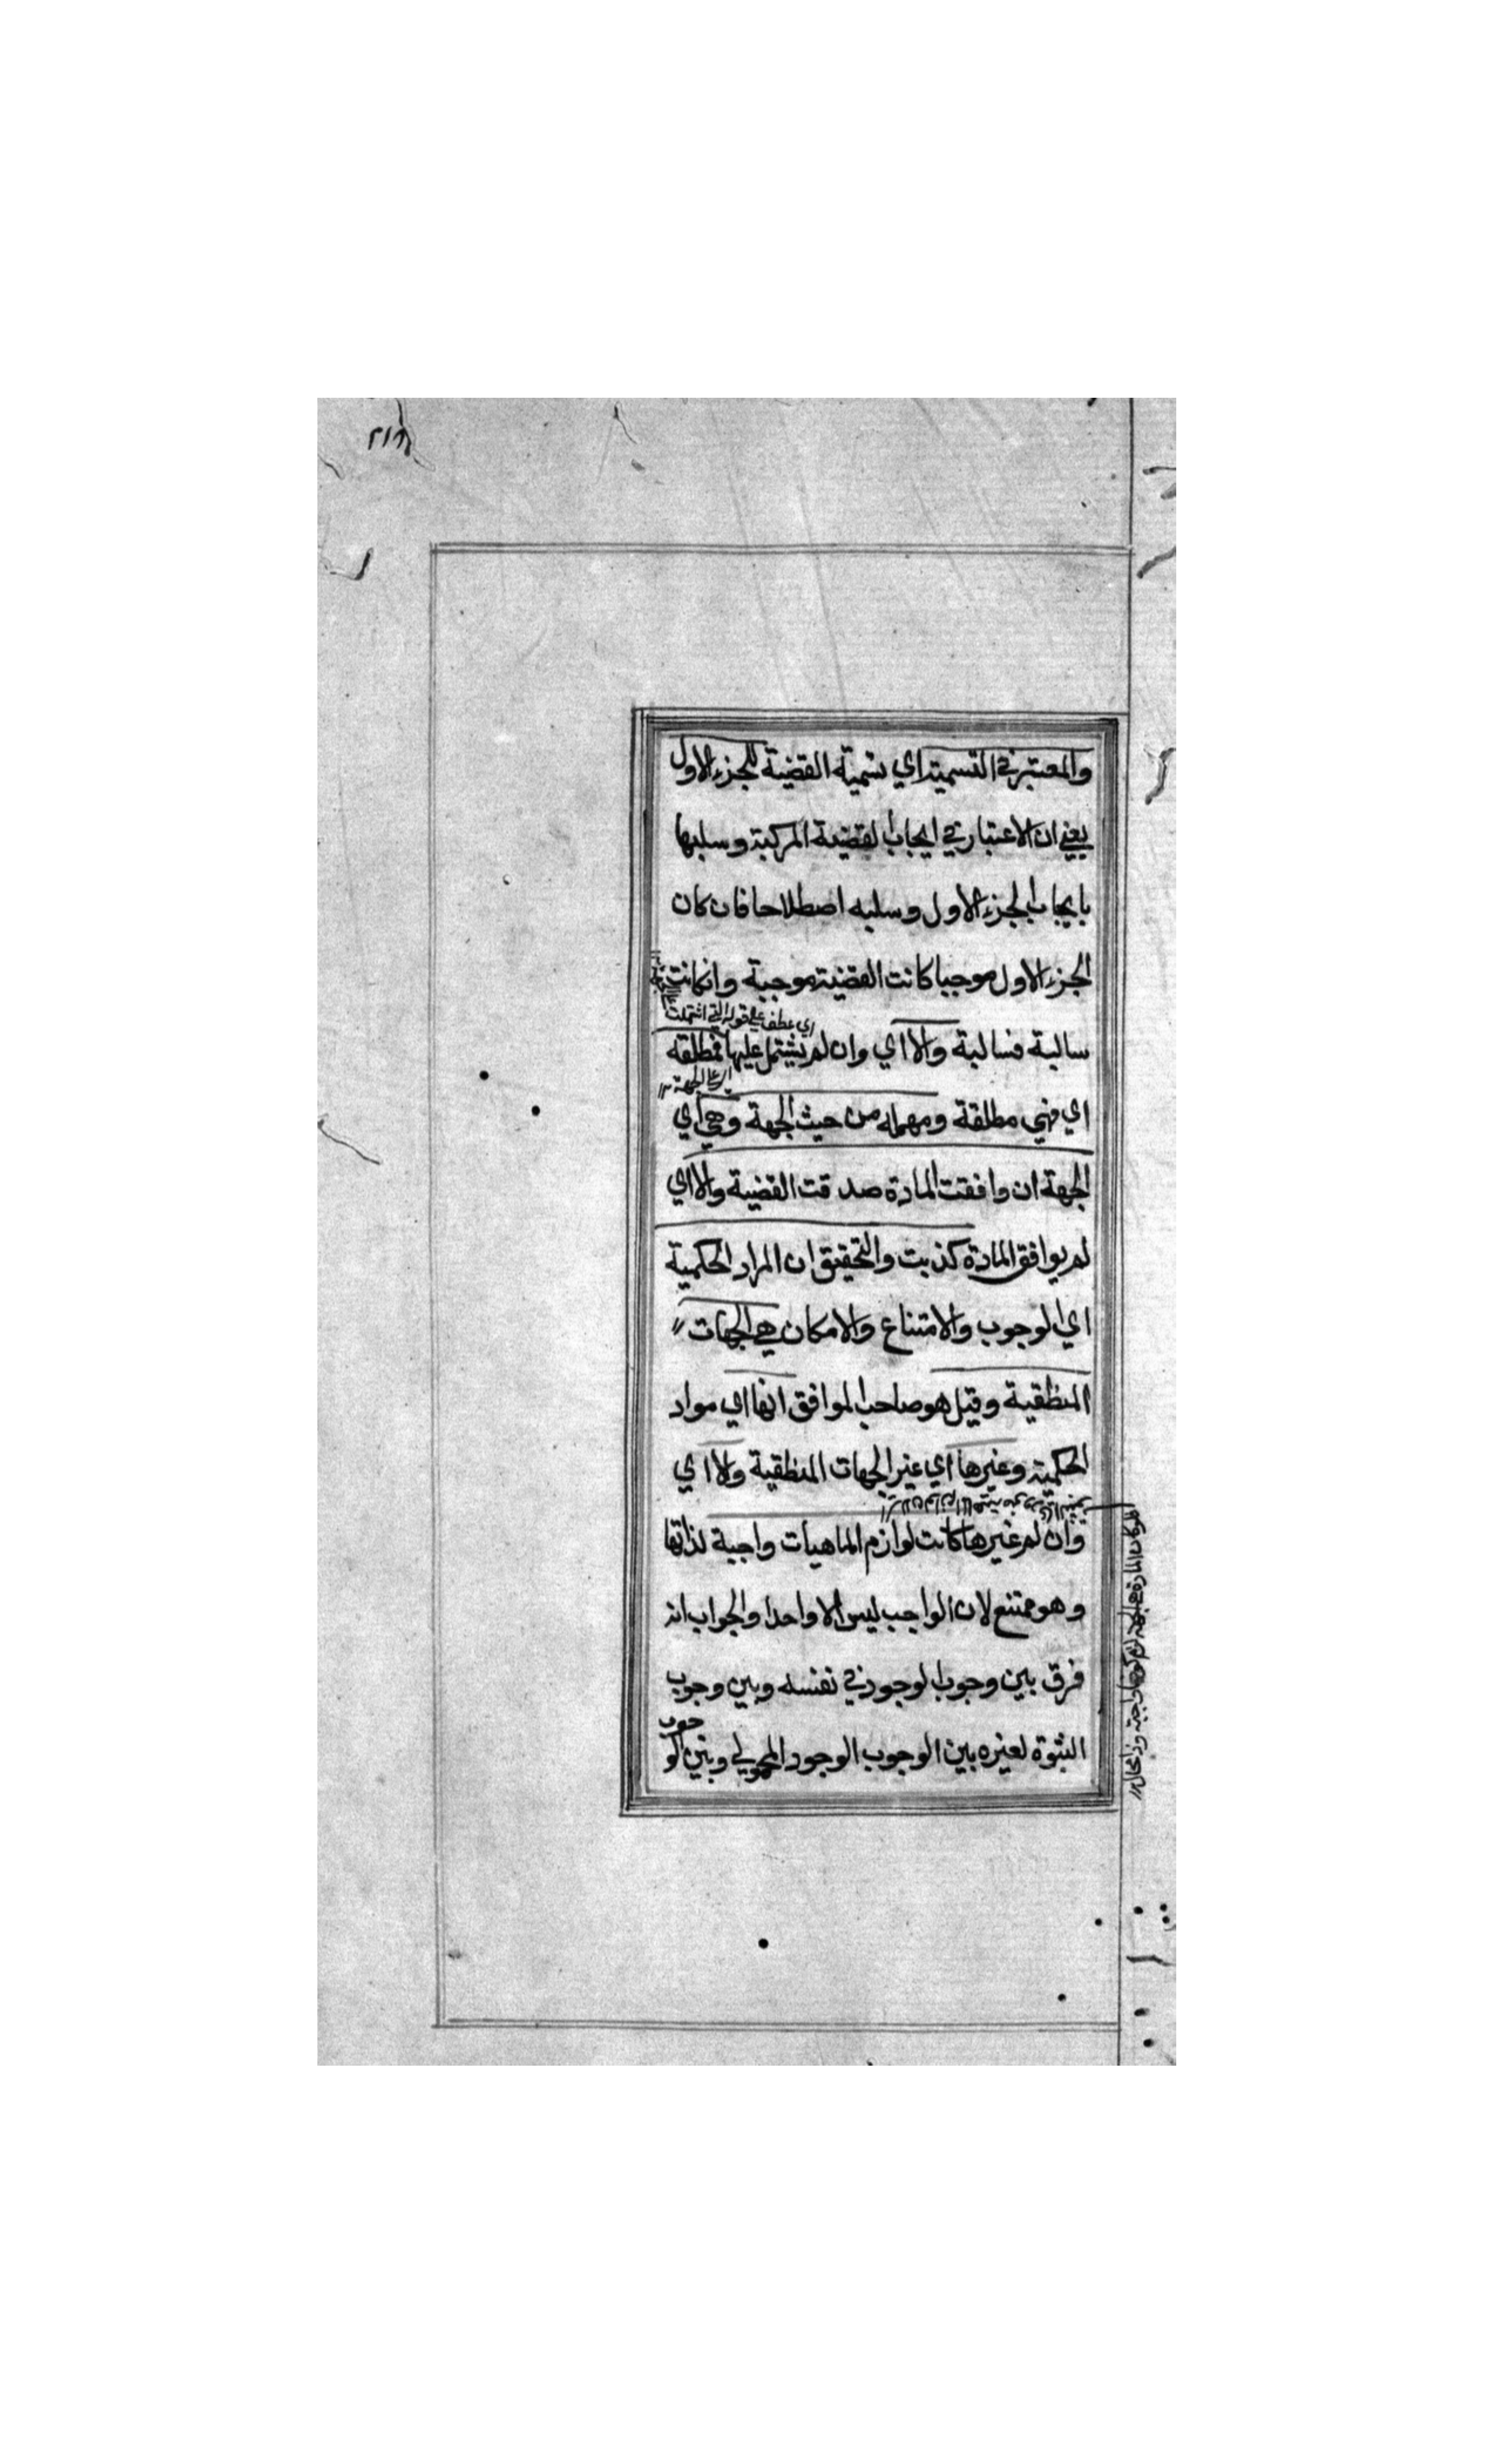 والمعتبر في التسمية اي تسمية القضية للجزء الاول
يعني ان الاعتبار في ايجاب القضية المركبة وسلبها
بايجاب الجزء الاول وسلبه اصطلاحا فان كان
الجزء الاول موجبا كانت القضية موجبة وانكانت
اي عطف على قوله التي اشتملت
سالبة فسالبة والا اي وان لم يشتمل عليها فمطلقة
اي على الجهة
اي فهي مطلقة ومهملة من حيث الجهة وهي اي
الجهة ان وافقت المادة صدقت القضية والا اي
لم يوافق المادة كذبت والتحقيق ان المراد الحكمية
اي الوجوب والامتناع والامكان هي الجهات
المنطقية وقيل هو صاحب الموافق انها اي مواد
الحكمية وغيرها اي غير الجهات المنطقية ولا اي
وان لم غيرها كانت لوازم الماهيات واجبة لذاتها
وهو ممتنع لان الواجب ليس الا واحدا والجواب انه
فرق بين وجوب الوجود في نفسه وبين وجوب
الثبوة لغيره بين الوجوب الوجود المحمولي وبين الو
جوب